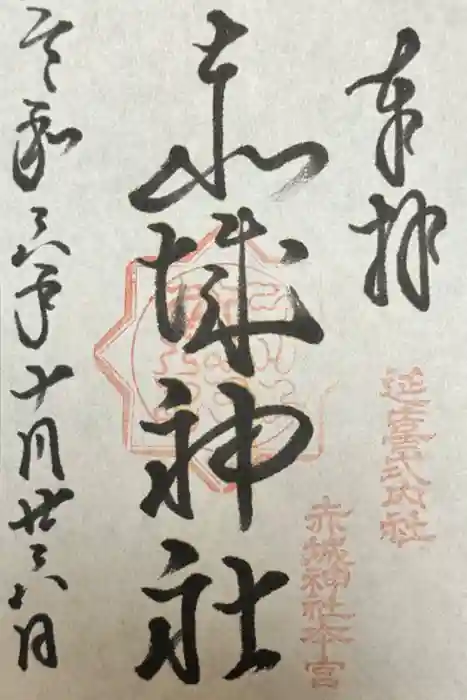 奉拝
延喜式内社
赤城神社本宮
赤城神社
令和六年十月廿六日